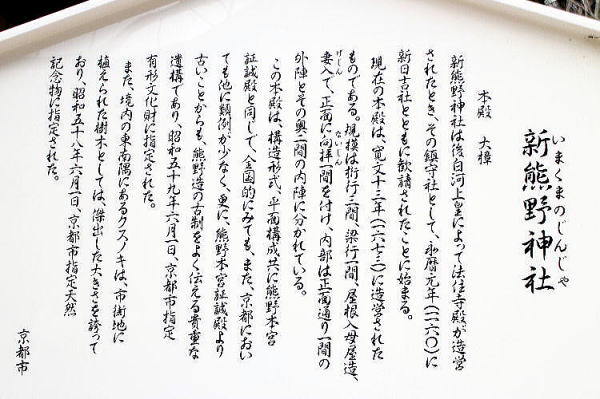 いまくまのじんじゃ
新熊野神社
本殿 大樟
新熊野神社は後白河上皇によって法住寺殿が造営
されたとき、その鎮守社として、永暦元年(一一六〇)に
新日吉社とともに歓請されたことに始まる。
現在の本殿は、寛文十三年(一六七三)に造営された
ものである。規模は桁行三間、梁行二間、屋根入母屋造、
妻入で、正面に向拝一間を付け、内部は正面通り一間の
げじん ないじん
外陣とその奥二間の内陣に分かれている。
この本殿は、構造形式、平面構成共に熊野本宮
証誠殿と同じで、全国的にみても、また、京都におい
ても他に類例が少なく、更に、熊野本宮証誠殿より
古いことからも、熊野造の古制をよく伝える貴重な
遺構であり、昭和五十九年六月一日、京都市指定
有形文化財に指定された。
また、境内の東南隅にあるクスノキは、市街地に
植えられた樹木としては、傑出した大きさを誇って
おり、昭和五十八年六月一日、京都市指定天然
記念物に指定された。
京都市